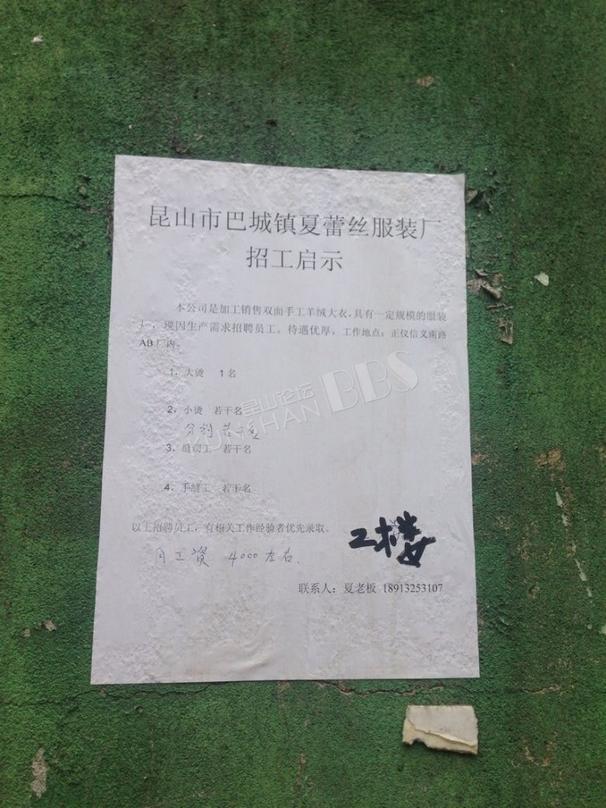 昆山市巴城镇夏蕾丝服装厂
招工启示
本公司是加工销售双面手工羊绒大衣,具有一定规模的服装
厂,现因生产需求招聘员工。待遇优厚,工作地点:正仪信义南路
AB厂内。
1,大烫 1名
2,小烫 若干名
分割 若干名
3,缝制工 若干名
4,手缝工 若干名
以上招聘员工,有相关工作经验者优先录取。
月工资 4000左右.
2楼
联系人:夏老板 18913253107
昆山论坛
KUNSHAN BBS